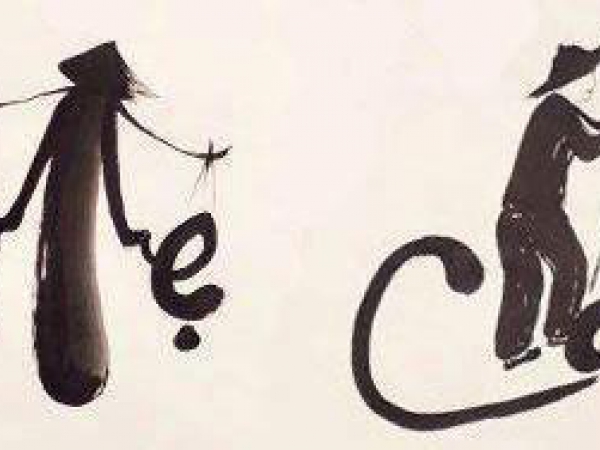 Mẹ Cha